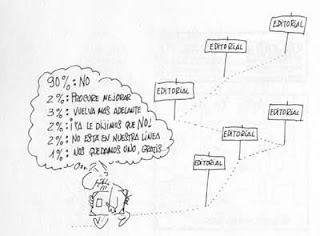 90%: NO
2%: PROCURE MEJORAR
3%: VUELVA MAS ADELANTE
2%: ¡YA LE DIJIMOS QUE NO!
2%: NO ESTA EN NUESTRA LÍNEA
1%: NOS QUEDAMOS UNO, GRATIS..
EDITORIAL
EDITORIAL
EDITORIAL
EDITORIAL
EDITORIAL
EDITORIAL